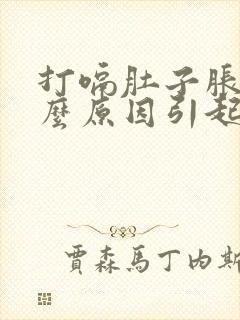 打嗝肚子脹
麼原因引起
賈森馬丁內斯